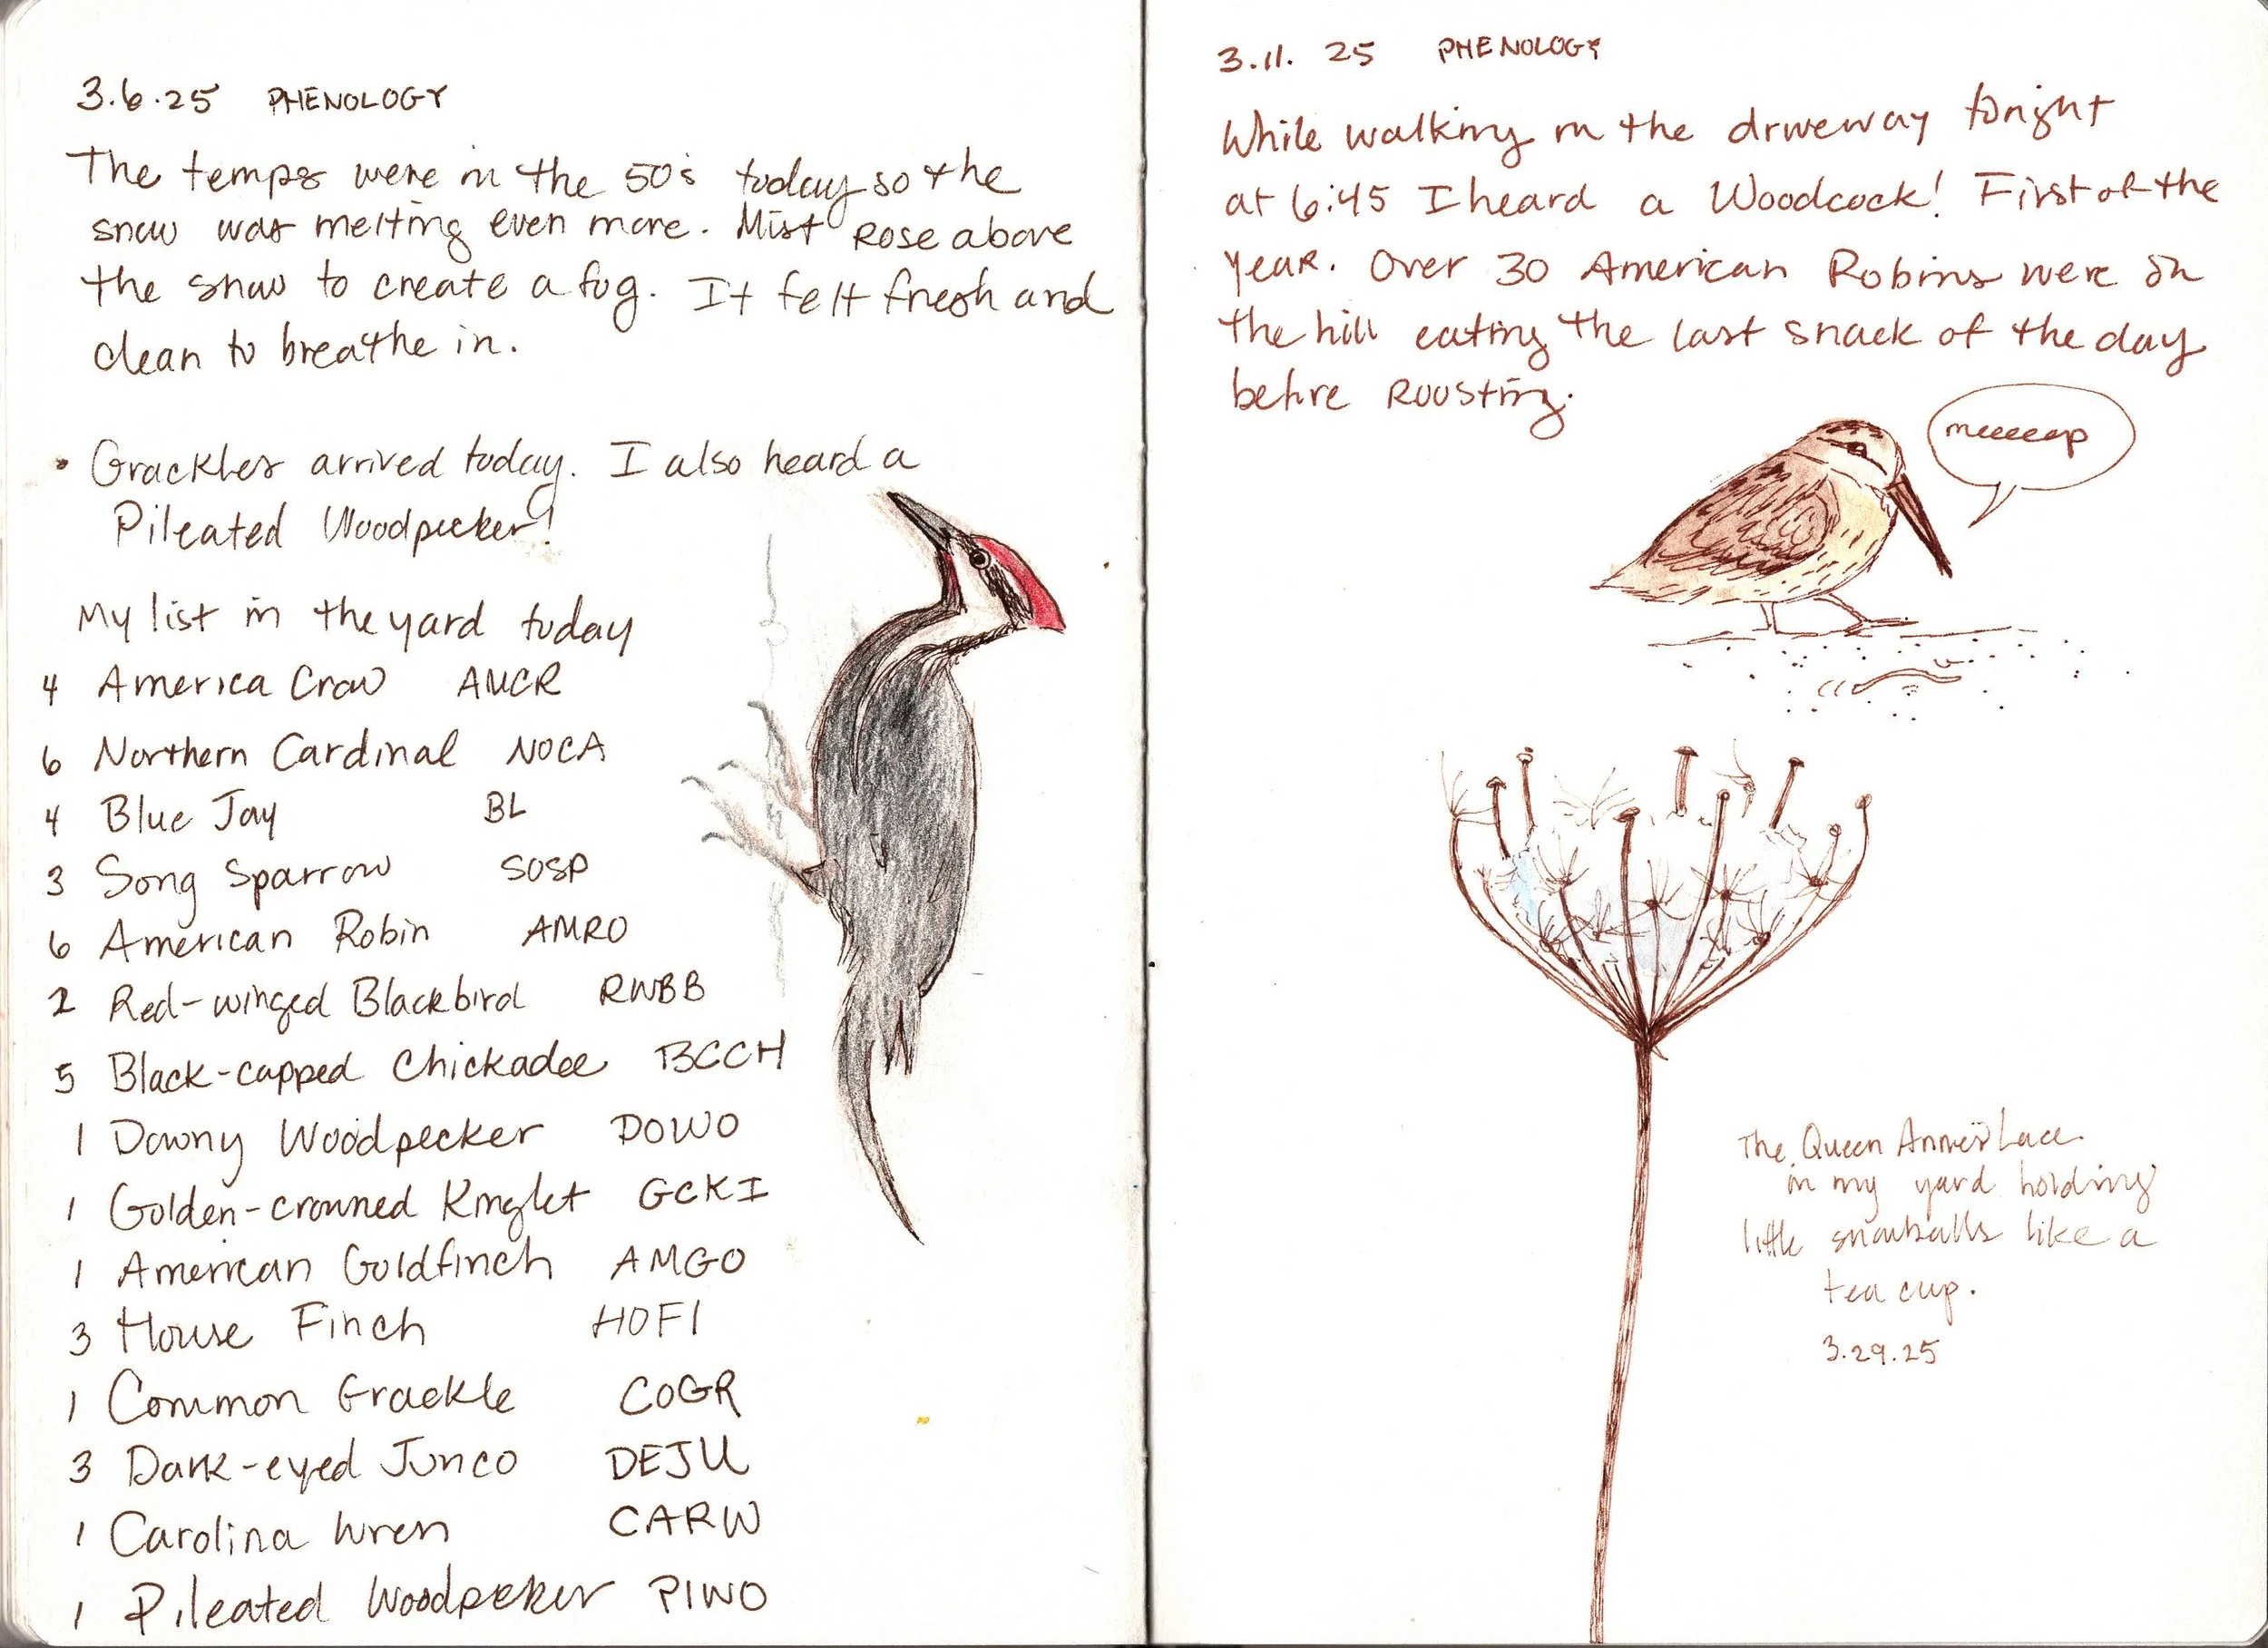 3.6.25 PHENOLOGY
The temps were in the 50's today so the
snow was melting even more. Mist Rose above
the snow to create a fog. It felt fresh and
clean to breathe in.
• Grackles arrived today. I also heard a
Pileated Woodpecker!
My list in the yard today
4 America Crow AMCR
6 Northern Cardinal NOCA
4 Blue Jay BL
3 Song Sparrow SOSP
6 American Robin AMRO
2 Red-winged Blackbird RWBB
5 Black-capped Chickadee BCCH
1 Downy Woodpecker DOWO
1 Golden-crowned Kinglet GCKI
1 American Goldfinch AMGO
3 House Finch HOFI
1 Common Grackle COGR
3 Dark-eyed Junco DEJU
1 Carolina Wren CARW
1 Pileated Woodpecker PIWO
3.11.25 PHENOLOGY
While walking in the driveway tonight
at 6:45 I heard a Woodcock! First of the
year. Over 30 American Robins were on
the hill eating the last snack of the day
before Roosting.
meeeeep
The Queen Anne's Lace
in my yard holding
little snowballs like a
tea cup.
3.29.25